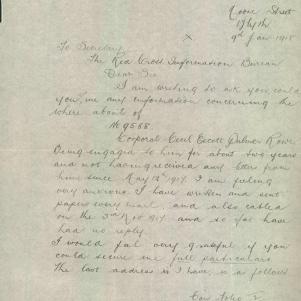 Moore Street
9th Jan 1918
To Secretary
The Red Cross Information Bureau
Dear Sir
I am writing to ask you could
you give me any information concerning the
where about of
No 9568
Corporal Cecil Escott Palmer Rowe
Being engaged to him for about two years
and not having received any letters from
him since May 1917. I am feeling
very anxious. I have written and sent
papers every mail and also cabled
on the 3rd Nov 1917 and so far have
had no reply.
I would feel very grateful if you
could secure me full particulars
The last address is I have is as follows